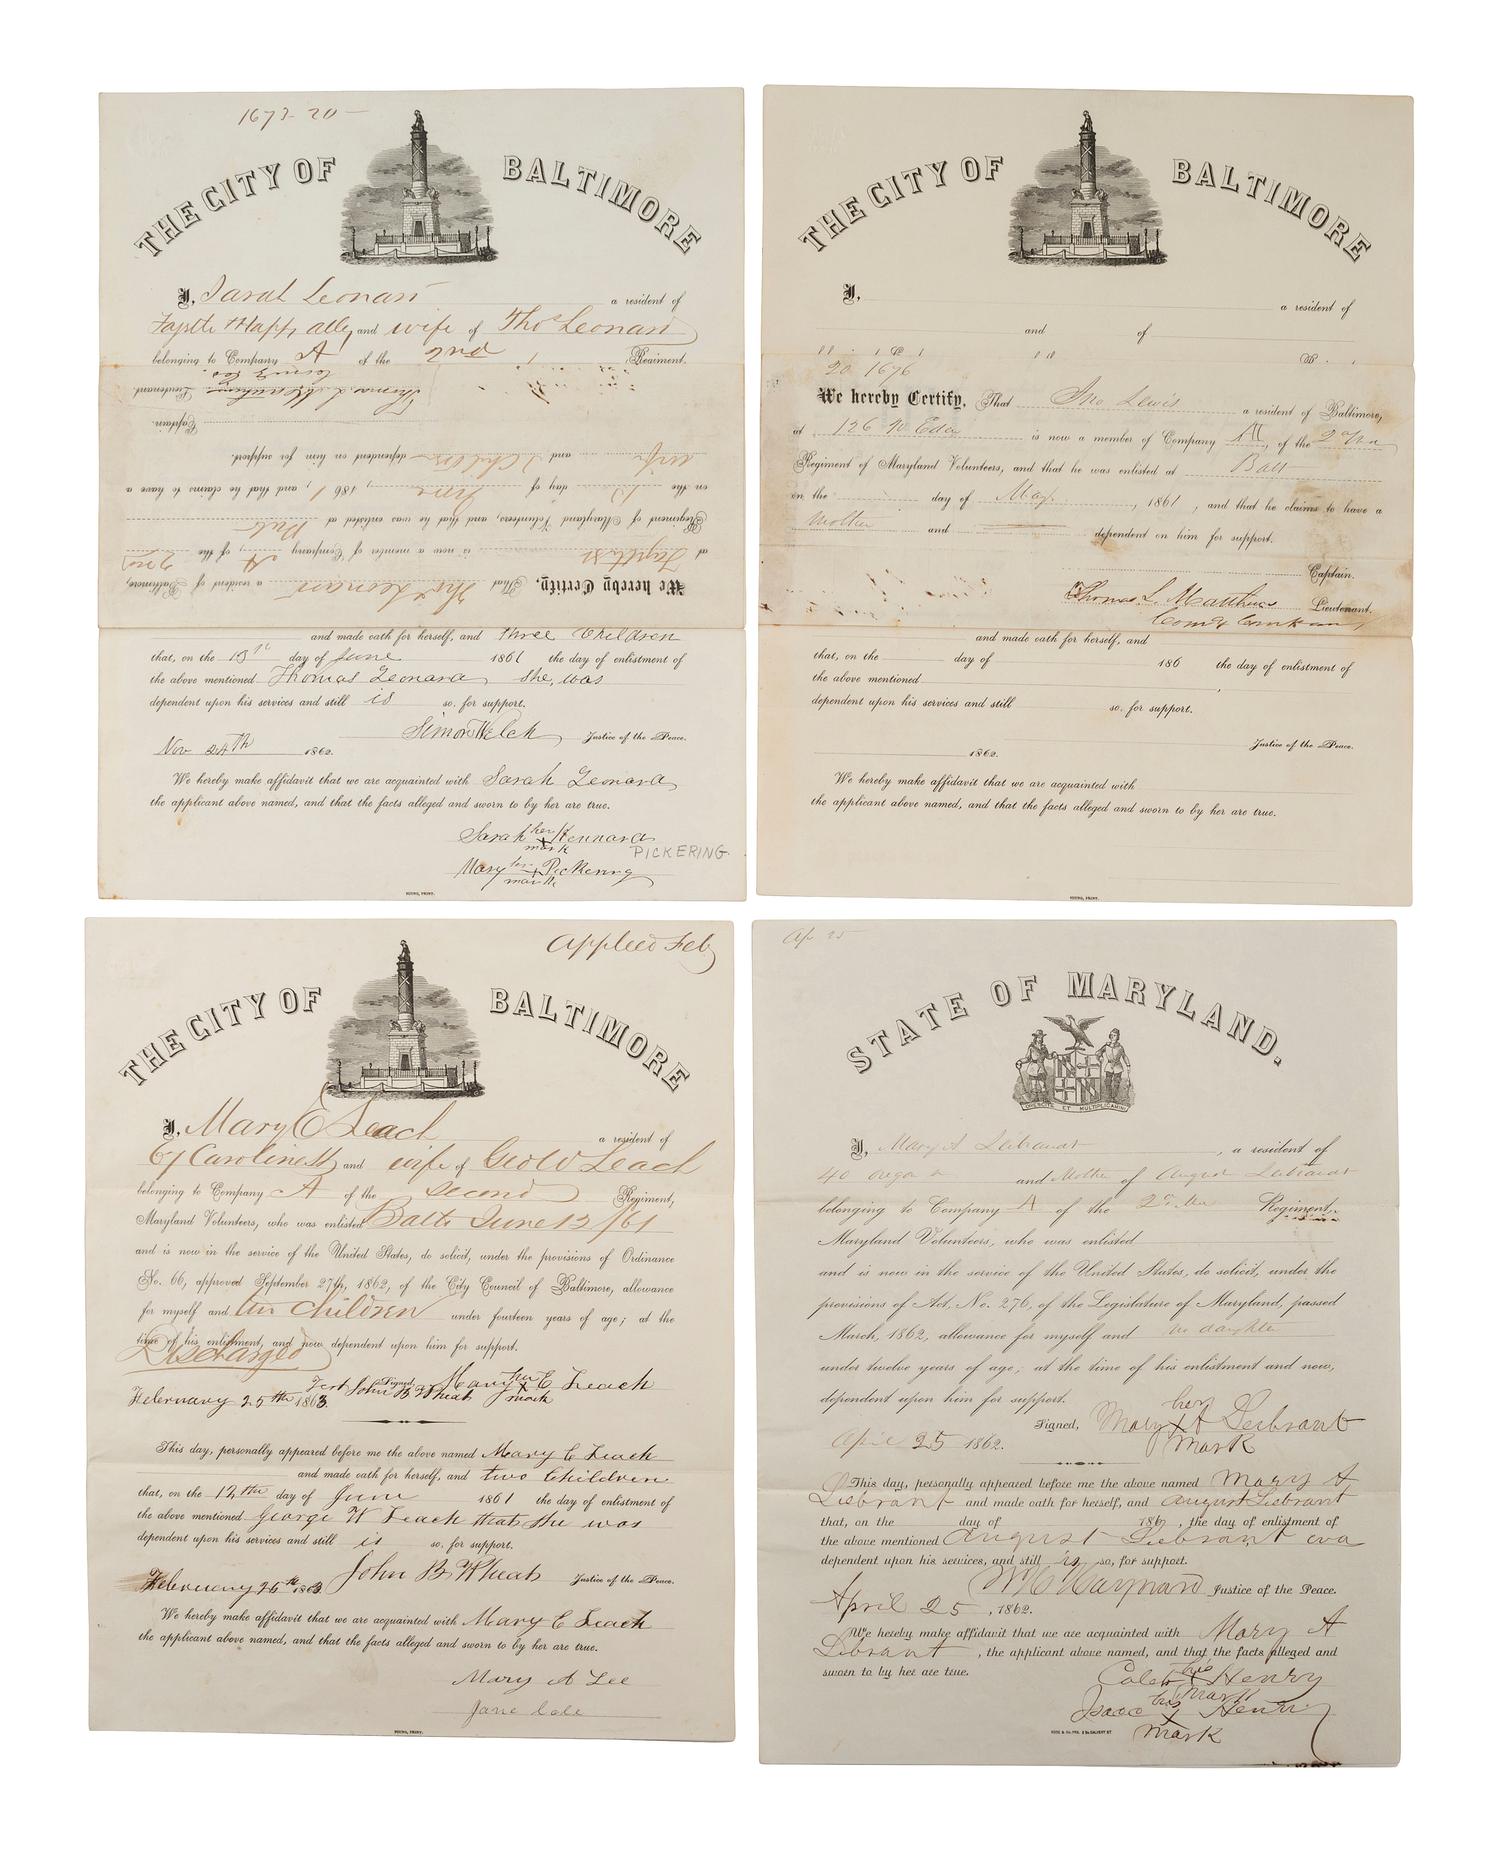 1673 20
THE CITY OF BALTIMORE
I, Sarah Leonard a resident of
alley and wife of Thos Leonard
belonging to Company A of the 2nd Regiment.
Lieutenant.
Captain.
wife and 3 Children dependent on him for support.
on the 13 day of June, 1861, and that he claims to have a
Regiment of Maryland Volunteers, and that he was enlisted at
at Fayette St is now a member of Company A, of the 2nd
We hereby Certify, That Thos Leonard a resident of Baltimore,
and made oath for herself, and three Children
that, on the 13th day of June 1861 the day of enlistment of
the above mentioned Thomas Leonard she was
dependent upon his services and still is so, for support.
Simon Welch Justice of the Peace.
Nov 24th 1862.
We hereby make affidavit that we are acquainted with Sarah Leonard
the applicant above named, and that the facts alleged and sworn to by her are true.
Sarah her X mark Kennard
PICKERING
Mary her X mark Pickering
YOUNG, PRINT.
THE CITY OF BALTIMORE
I, a resident of
and of
20 1676
We hereby Certify, That Jno Lewis a resident of Baltimore,
at 126 N Eden is now a member of Company A, of the 2
Regiment of Maryland Volunteers, and that he was enlisted at Balt
on the day of May, 1861, and that he claims to have a
Mother and dependent on him for support.
Captain.
Thomas L. Matthews Lieutenant.
Comg Company
and made oath for herself, and
that, on the day of 186 the day of enlistment of
the above mentioned
dependent upon his services and still so, for support.
1862. Justice of the Peace.
We hereby make affidavit that we are acquainted with
the applicant above named, and that the facts alleged and sworn to by her are true.
YOUNG, PRINT.
Applied Feb
THE CITY OF BALTIMORE
I, Mary E Leach a resident of
Caroline St and wife of Geo W Leach
belonging to Company A of the second Regiment,
Maryland Volunteers, who was enlisted Balto June 12/61
and is now in the service of the United States, do solicit, under the provisions of Ordinance
No. 66, approved September 27th, 1862, of the City Council of Baltimore, allowance
for myself and two children under fourteen years of age; at the
time of his enlistment, and now dependent upon him for support.
Discharged
Signed, Mary her X mark E Leach
Test John B Wheat
February 25th 1863.
This day, personally appeared before me the above named Mary E Leach
and made oath for herself, and two Children
that, on the 12th day of June 1861 the day of enlistment of
the above mentioned George W Leach that she was
dependent upon his services and still is so, for support.
John B Wheat Justice of the Peace.
February 25th 1863
We hereby make affidavit that we are acquainted with Mary E Leach
the applicant above named, and that the facts alleged and sworn to by her are true.
Mary A Lee
Jane Cole
YOUNG, PRINT.
Ap 25
STATE OF MARYLAND.
CRESCITE ET MULTIPLICAMINI
I, Mary A Leibrandt, a resident of
40 and Mother of August Leibrandt
belonging to Company A of the 2d Regiment,
Maryland Volunteers, who was enlisted
and is now in the service of the United States, do solicit, under the
provisions of Act, No. 276, of the Legislature of Maryland, passed
March, 1862, allowance for myself and daughter
under twelve years of age; at the time of his enlistment and now,
dependent upon him for support.
Signed, Mary her X mark A Leibrant
April 25 1862.
This day, personally appeared before me the above named Mary A
Liebrant and made oath for herself, and August Liebrant
that, on the day of 186, the day of enlistment of
the above mentioned August Liebrant
dependent upon his services, and still is so, for support.
Justice of the Peace.
April 25, 1862.
We hereby make affidavit that we are acquainted with Mary A
Librant, the applicant above named, and that the facts alleged and
sworn to by her are true.
Caleb his X mark Henry
Isaac his X mark Henry